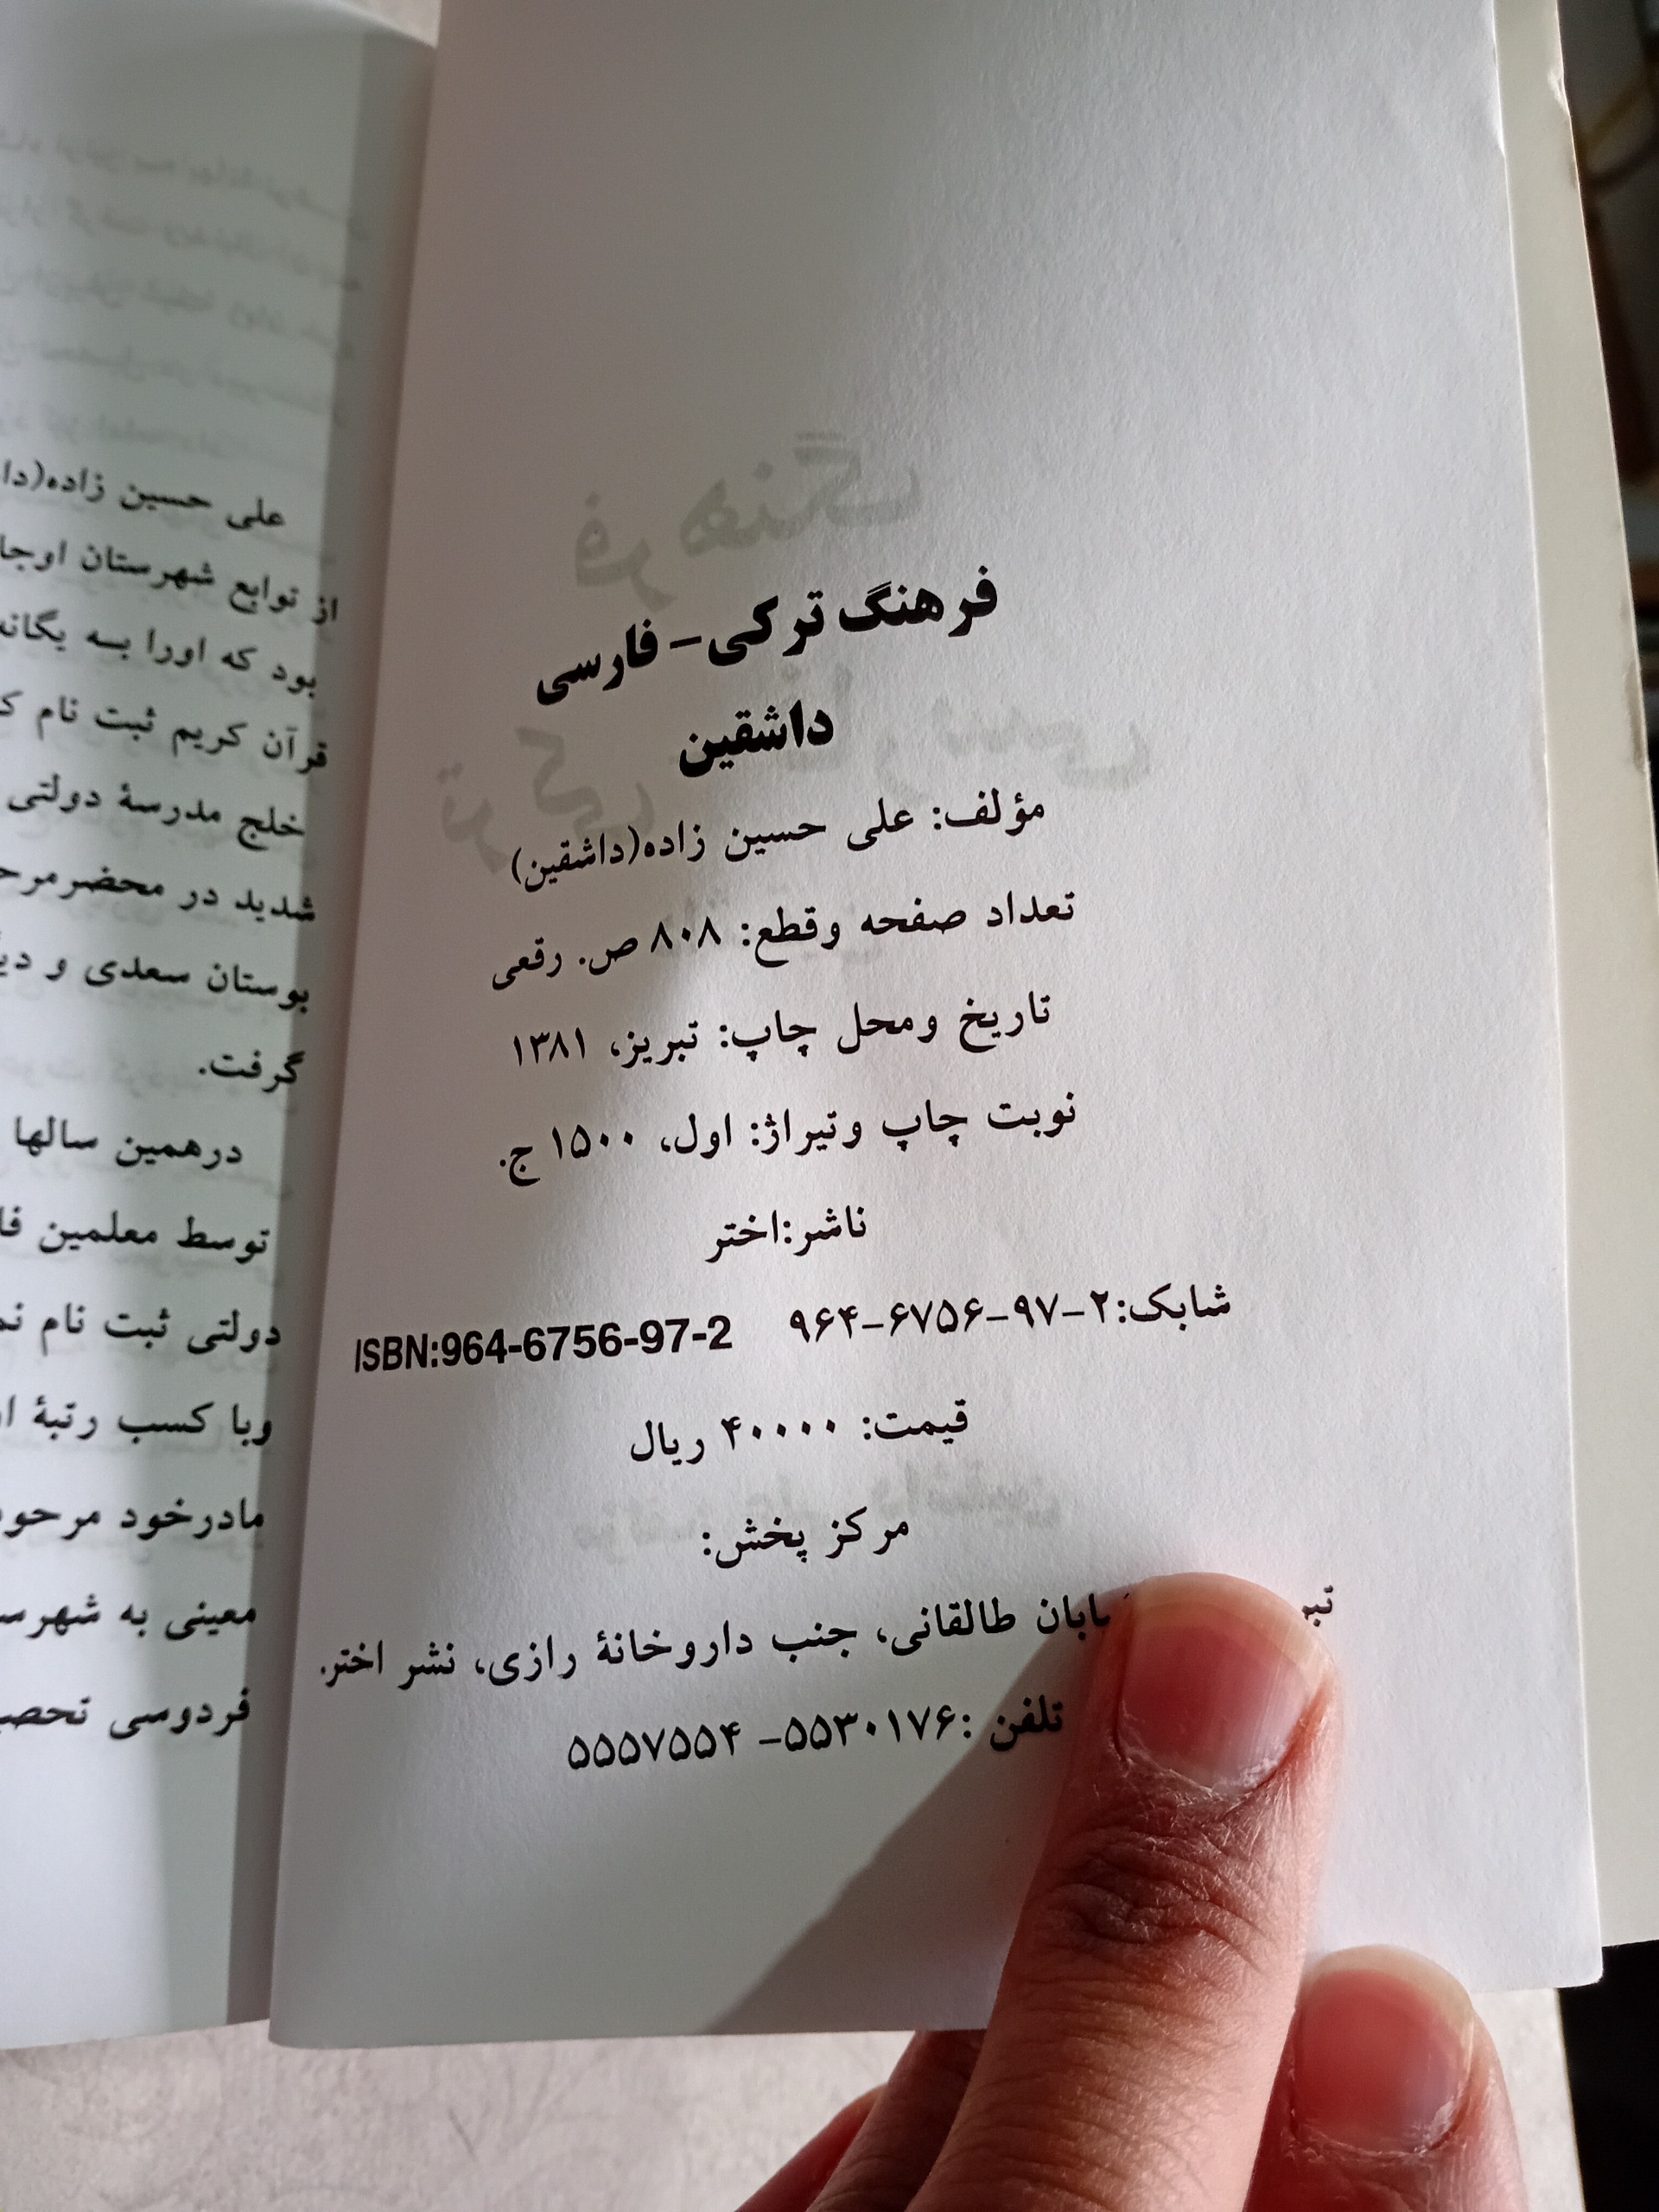 فرهنگ ترکی- فارسی
داشقین
مؤلف: علی حسین زاده(داشقین)
تعداد صفحه وقطع: ۸۰۸ ص. رقعی
تاریخ ومحل چاپ: تبریز، ۱۳۸۱
نوبت چاپ وتیراژ: اول، ۱۵۰۰ ج.
ناشر:اختر
شابک:۲-۹۷-۶۷۵۶-۹۶۴ ISBN:964-6756-97-2
قیمت: ۴۰۰۰۰ ریال
مرکز پخش:
طالقانی، جنب داروخانهٔ رازی، نشر اختر.
تلفن :۵۵۳۰۱۷۶- ۵۵۵۷۵۵۴
علی حسین زاده(
از توابع شهرستان
بود که اورا بسه یگانه
قرآن کریم ثبت نام
خلج مدرسهٔ دولتی
شدید در
بوستان سعدی و
گرفت.
درهمین سالها
توسط معلمین
دولتی ثبت نام
وبا کسب رتبهٔ
مادرخود
معینی به
فردوسی